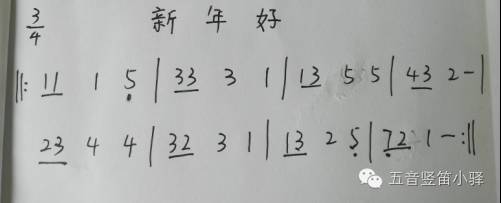 3/4 新年好
‖: 11 1 5 | 33 3 1 | 13 5 5 | 43 2 - |
23 4 4 | 32 3 1 | 13 2 5 | 72 1 - :‖
五音竖笛小驿